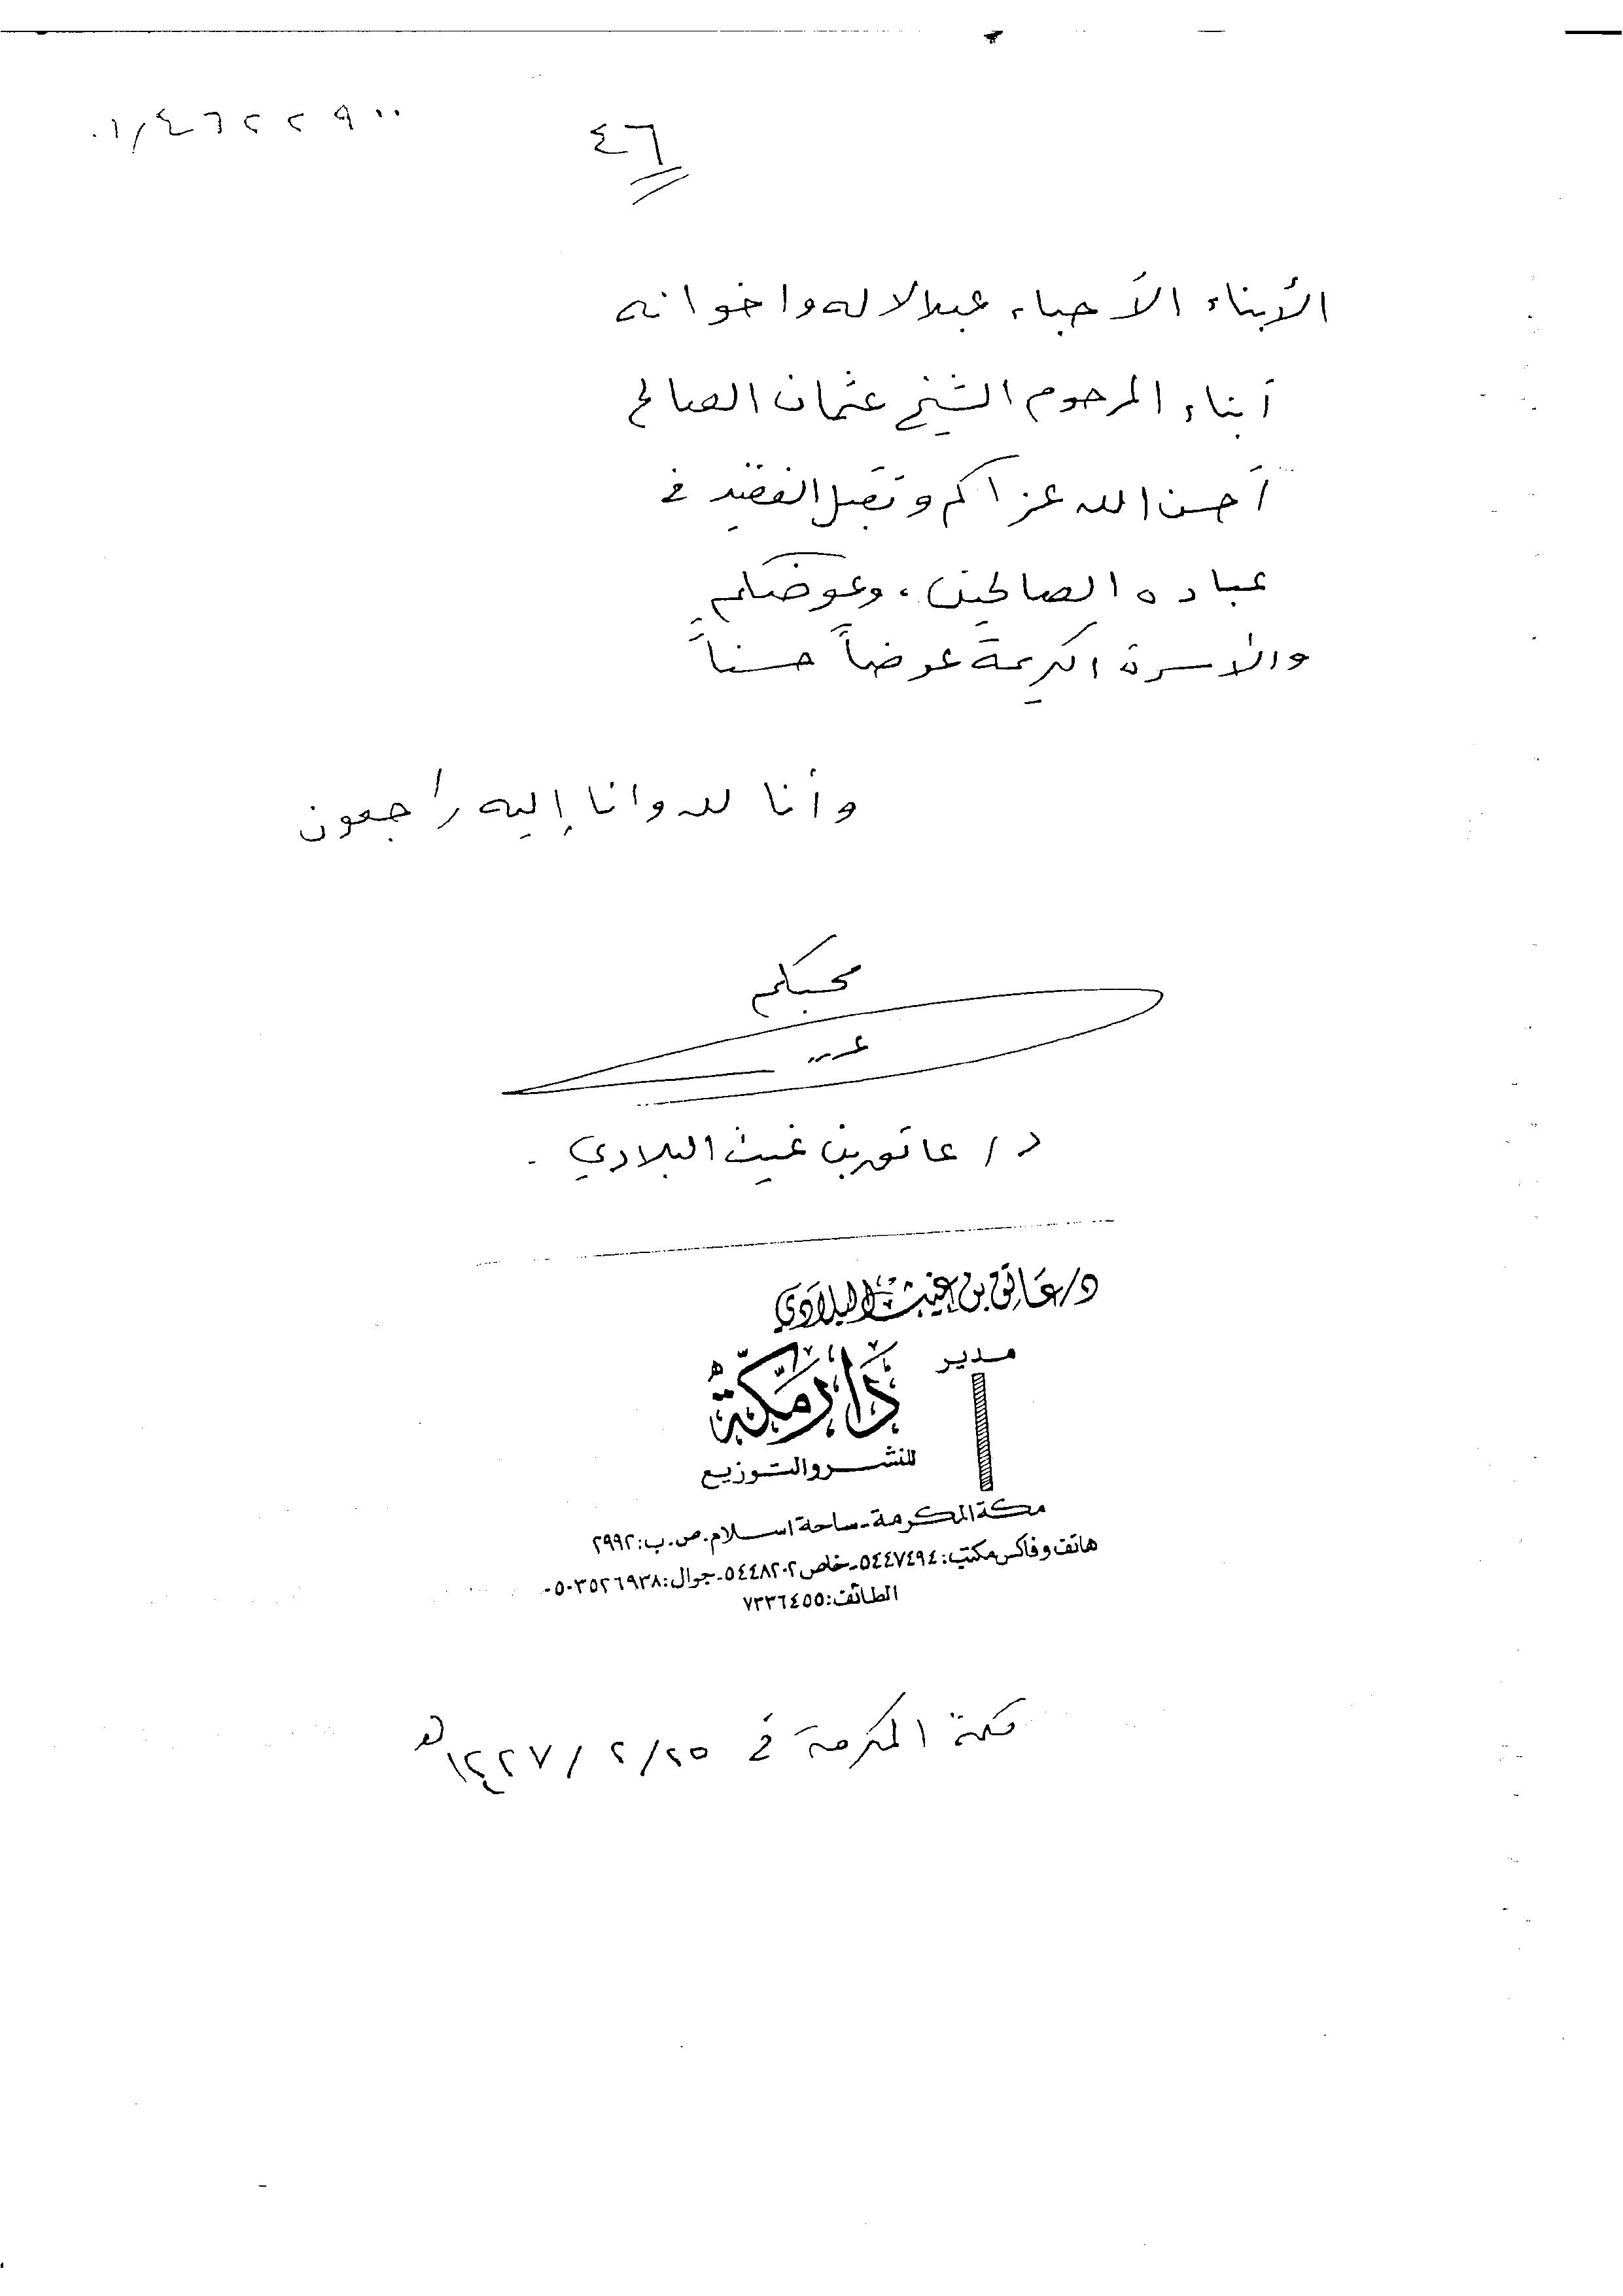 ٠١/٤٦٢٢٩٠٠
٤٦
الأبناء الأحباء عبدالاله واخوانه
أبناء المرحوم الشيخ عثمان الصالح
أحسن الله عزاكم وتقبل الفقيد في
عباده الصالحين، وعوضكم
والاسرة الكريمة عوضاً حسناً
وأنا لله وانا إليه راجعون
محبكم
د/ عاتق بن غيث البلادي .
د/عاتق بن غيث البلادي
مدير
دار مكة
للنشر والتوزيع
مكة المكرمة - ساحة اسلام . ص . ب : ٢٩٩٢
هاتف وفاكس مكتب : ٥٤٤٧٤٩٤ - خاص ٥٤٤٨٢٠٢ - جوال : ٠٥٠٣٥٢٦٩٣٨
الطائف : ٧٣٣٦٤٥٥
مكة المكرمة في ٢/٢٥/ ١٤٢٧هـ